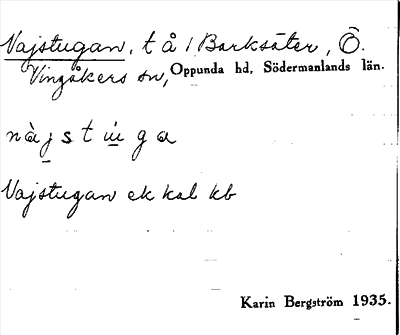 Vajstugan, t å / Barksäter, Ö.
Vingåkers sn, Oppunda hd, Södermanlands län.
vàjstu̇ga
Vajstugan ek kal kb
Karin Bergström 1935.